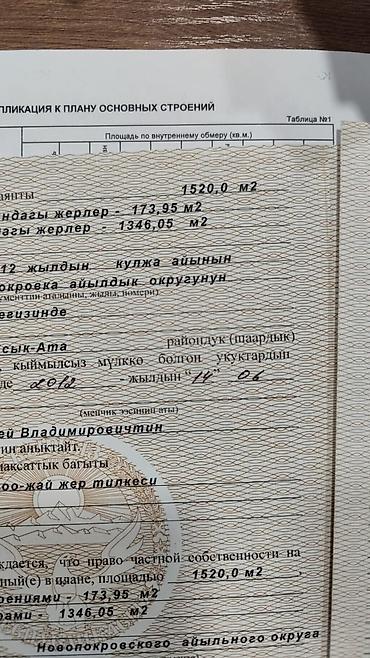 ПЛИКАЦИЯ К ПЛАНУ ОСНОВНЫХ СТРОЕНИЙ
Таблица №1
Площадь по внутреннему обмеру (кв.м.)
аянты 1520,0 м2
ндагы жерлер - 173,95 м2
агы жерлер - 1346,05 м2
12 жылдын кулжа айынын
окровка айылдык округунун
ументтин аталышы, жылы, номери)
егизинде
сык-Ата райондук (шаардык)
кыймылсыз мүлккө болгон укуктардын
де 2012 - жылдын "14" 06
(менчик ээсинин аты)
ей Владимировичтин
ин аныктайт.
максаттык багыты
оо-жай жер тилкеси
ждается, что право частной собственности на
ный(е) в плане, площадью 1520,0 м2
оениями - 173,95 м2
рами - 1346,05 м2
Новопокровского айыльного округа